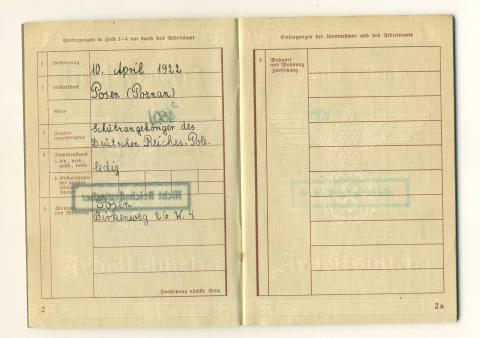 Eintragungen in Feld 1–4 nur durch das Arbeitsamt
1 Geburtstag
10. April 1922
2 Geburtsort
Posen (Poznań)
Kreis
3 Staats-
angehörigkeit
Schutzangehöriger des
Deutschen Reiches-Pole.
4 Familienstand
ledig
Nicht Reichsdeutscher
5
Posen
Birkenweg 26 W. 4
Fortsetzung nächste Seite
2
Eintragungen der Unternehmer und des Arbeitsamts
5 Wohnort
und Wohnung
Fortsetzung
Arbeitsbuch
2a